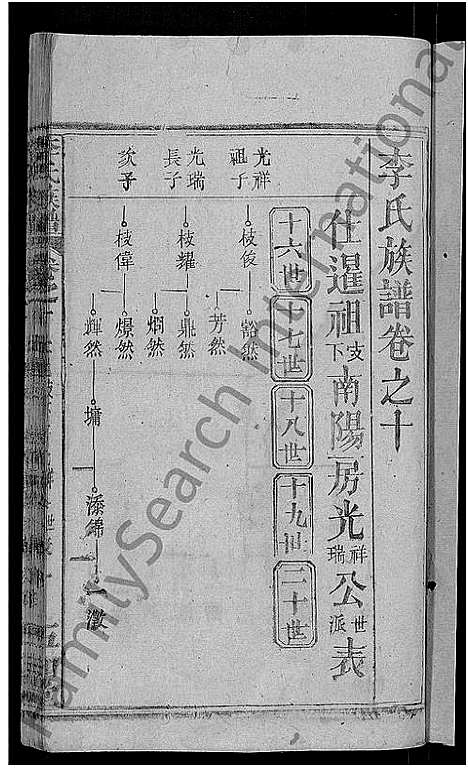 李氏族譜卷之十
仕暹祖支下南陽房光祥瑞公世派表
十六世 十七世 十八世 十九世 二十世
光祥祖子 枝俊
芳然
光瑞長子 枝耀 鼎然
炯然
次子 枝偉 燝然
輝然 墉 添錦 徵
FamilySearch International